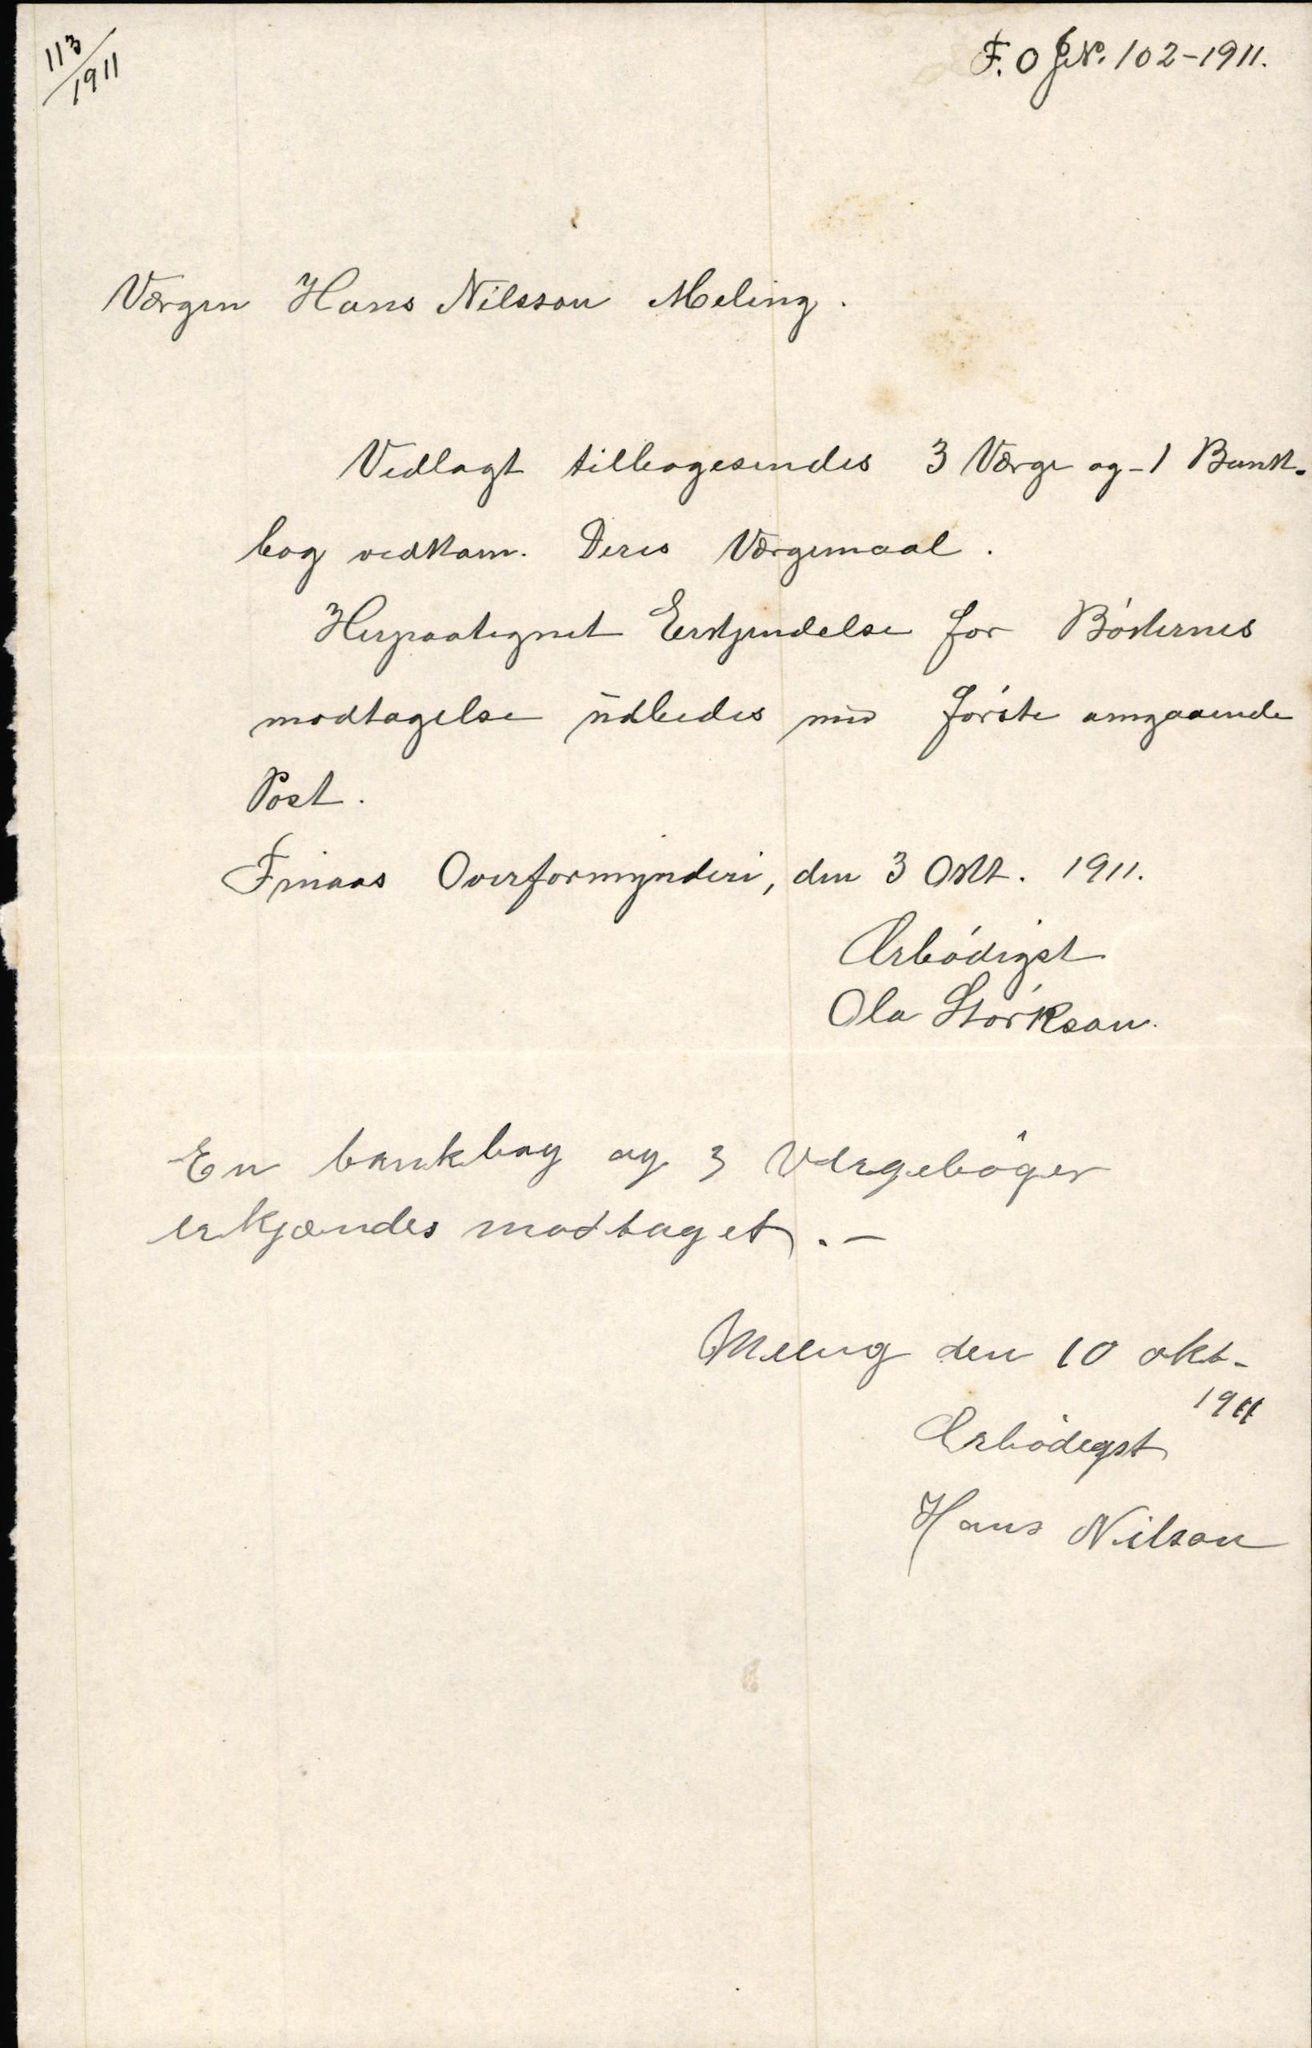 113/1911
F. O. J.N. 102-1911.
Værgen Hans Nilsson Meling.
Vedlagt tilbagesendes 3 Værge og - 1 Bank-
bog vedkom. Deres Værgemaal.
Herpaategnet Erkjendelse for Bøkernes
modtagelse udbedes med første omgaaende
Post.
Finaas Overformynderi, den 3 Okt. 1911.
Ærbødigst
Ola Størkson.
En bankbog og 3 Værgebøger
erkjændes modtaget. -
Meling den 10 okt-
1911
Ærbødigst
Hans Nilson